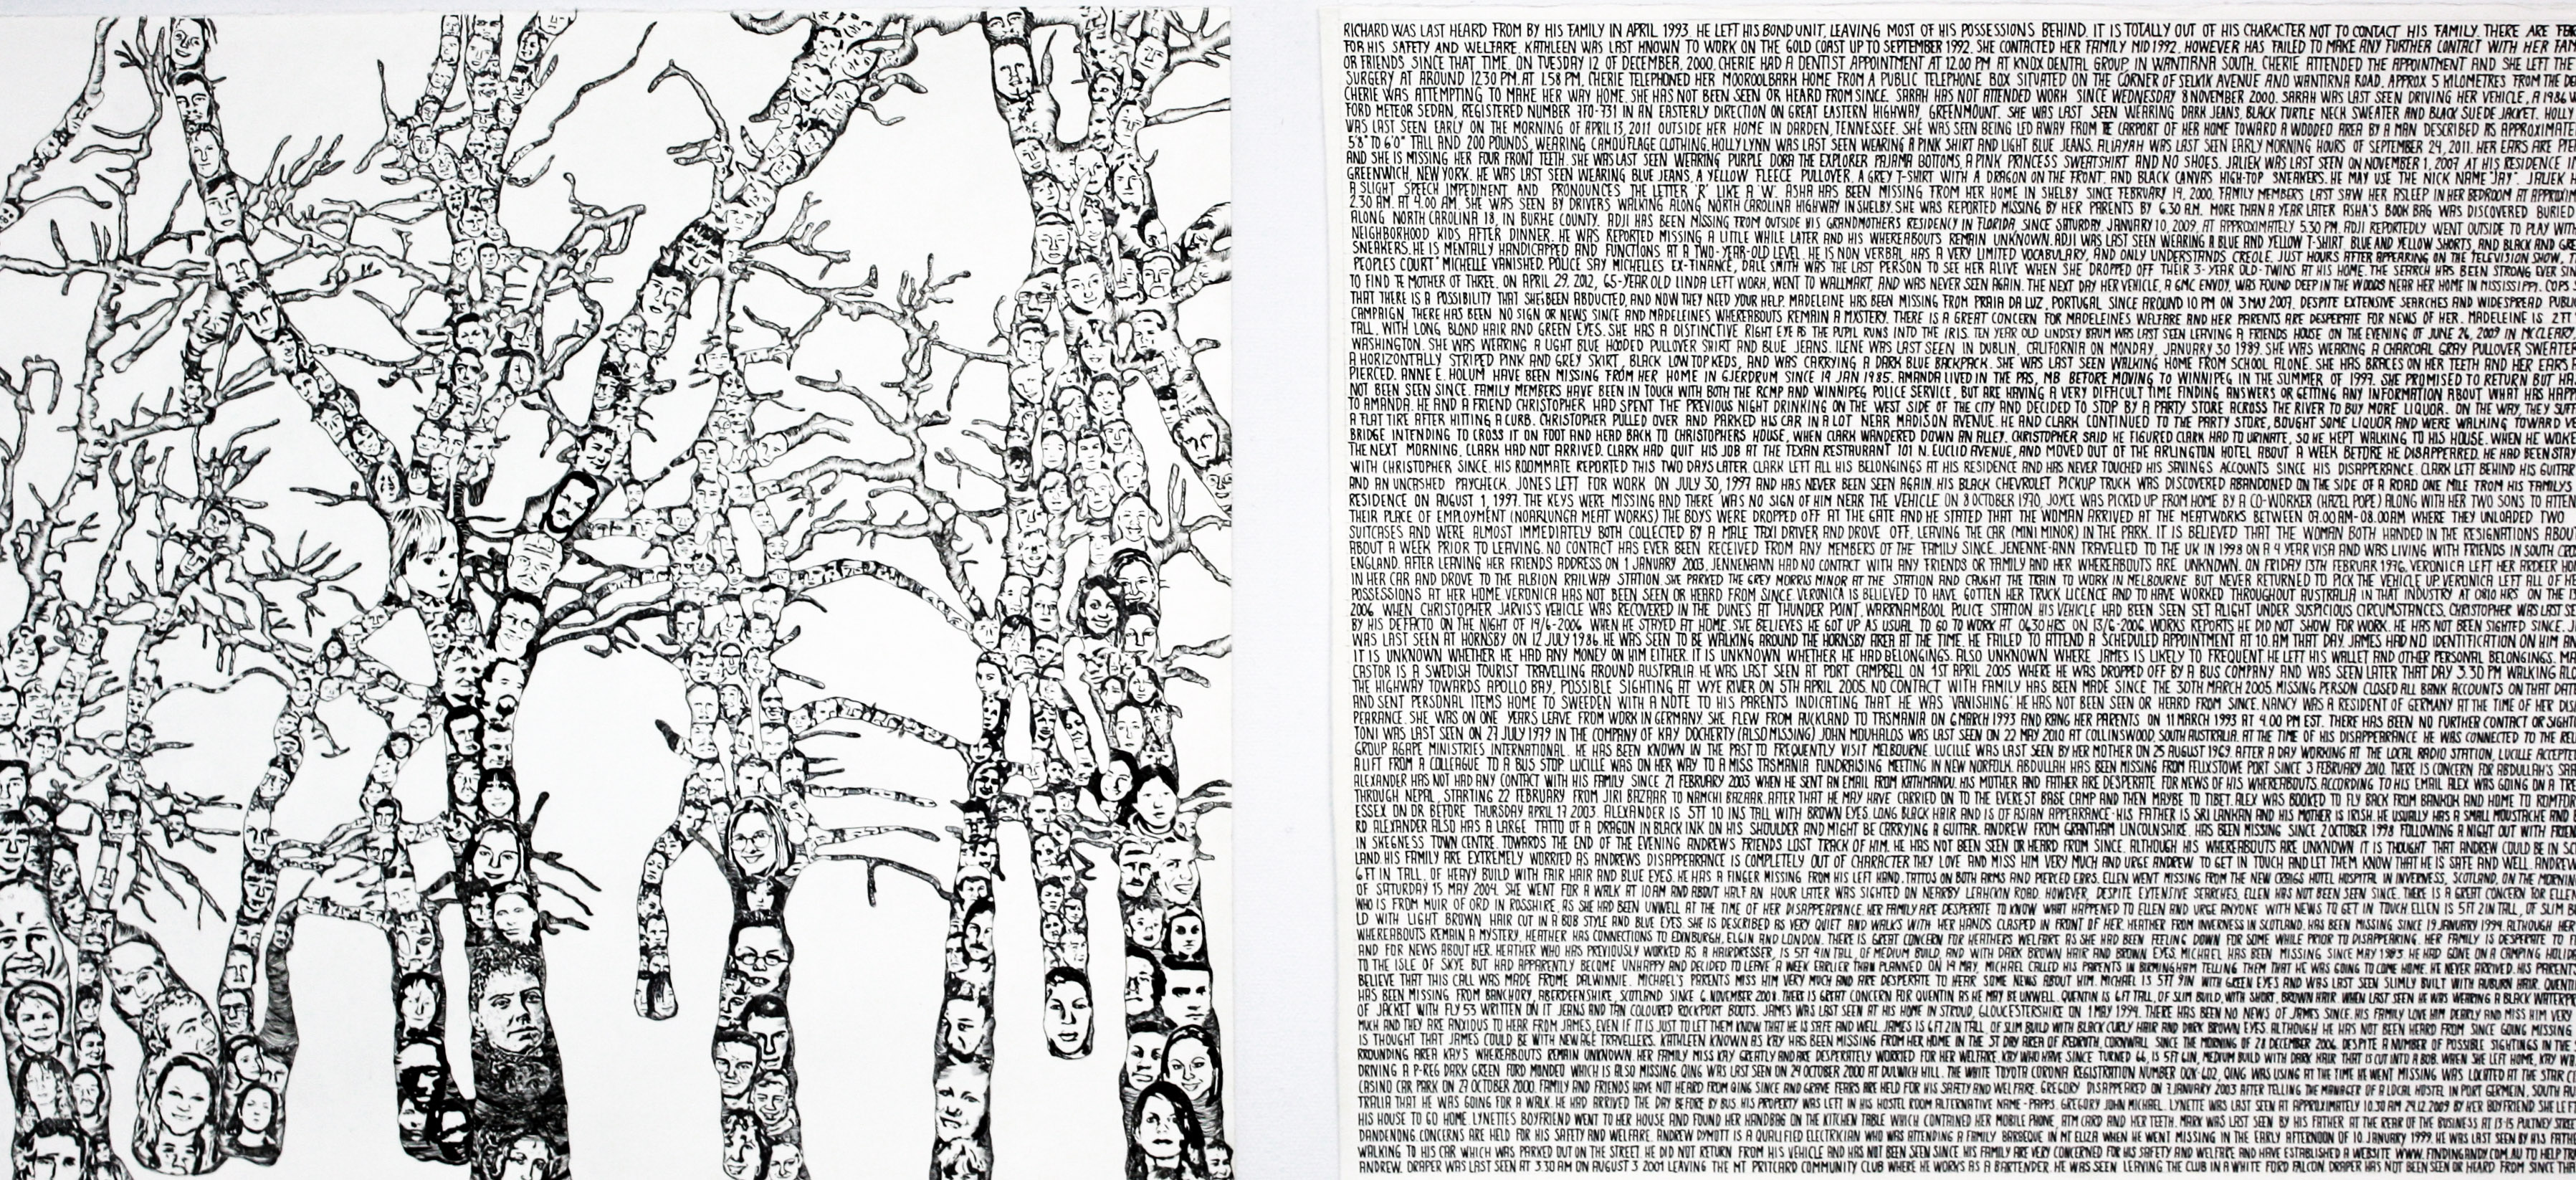 RICHARD WAS LAST HEARD FROM BY HIS FAMILY IN APRIL 1993. HE LEFT HIS BONDUNIT, LEAVING MOST OF HIS POSSESSIONS BEHIND. IT IS TOTALLY OUT OF HIS CHARACTER NOT TO CONTACT HIS FAMILY. THERE ARE
FOR HIS SAFETY AND WELFARE. KATHLEEN WAS LAST KNOWN TO WORK ON THE GOLD COAST UP TO SEPTEMBER 1992. SHE CONTACTED HER FAMILY MID 1992. HOWEVER HAS FAILED TO MAKE ANY FURTHER CONTACT WITH HER FAM
OR FRIENDS SINCE THAT TIME. ON TUESDAY 12 OF DECEMBER, 2000, CHERIE HAD A DENTIST APPOINTMENT AT 12.00 PM AT KNOX DENTAL GROUP, IN WANTIRNA SOUTH. CHERIE ATTENDED THE APPOINTMENT AND SHE LEFT THE
SURGERY AT AROUND 12.30 PM. AT 1.58 PM, CHERIE TELEPHONED HER MOOROOLBARK HOME FROM A PUBLIC TELEPHONE BOX SITUATED ON THE CORNER OF SELKIK AVENUE AND WANTIRNA ROAD. APPROX 5 KILOMETRES FROM THE DE
CHERIE WAS ATTEMPTING TO MAKE HER WAY HOME. SHE HAS NOT BEEN SEEN OR HEARD FROM SINCE. SARAH HAS NOT ATTENDED WORK SINCE WEDNESDAY 8 NOVEMBER 2000. SARAH WAS LAST SEEN DRIVING HER VEHICLE, A 1986 W
FORD METEOR SEDAN, REGISTERED NUMBER 7FO-731 IN AN EASTERLY DIRECTION ON GREAT EASTERN HIGHWAY, GREENMOUNT. SHE WAS LAST SEEN WEARING DARK JEANS, BLACK TURTLE NECK SWEATER AND BLACK SUEDE JACKET. HOLLY
WAS LAST SEEN EARLY ON THE MORNING OF APRIL 13, 2011 OUTSIDE HER HOME IN DARDEN, TENNESSEE. SHE WAS SEEN BEING LED AWAY FROM TE CARPORT OF HER HOME TOWARD A WOODED AREA BY A MAN DESCRIBED AS APPROXIMATE
5'8" TO 6'0" TALL AND 200 POUNDS, WEARING CAMOUFLAGE CLOTHING. HOLLY LYNN WAS LAST SEEN WEARING A PINK SHIRT AND LIGHT BLUE JEANS. ALIAYAH WAS LAST SEEN EARLY MORNING HOURS OF SEPTEMBER 24, 2011. HER EARS ARE PIE
AND SHE IS MISSING HER FOUR FRONT TEETH. SHE WAS LAST SEEN WEARING PURPLE DORA THE EXPLORER PAJAMA BOTTOMS, A PINK PRINCESS SWEATSHIRT AND NO SHOES. JALIEK WAS LAST SEEN ON NOVEMBER 1, 2007 AT HIS RESIDENCE IN
GREENWICH, NEW YORK. HE WAS LAST SEEN WEARING BLUE JEANS, A YELLOW FLEECE PULLOVER, A GREY T-SHIRT WITH A DRAGON ON THE FRONT, AND BLACK CANVAS HIGH-TOP SNEAKERS. HE MAY USE THE NICK NAME "JAY". JALIEK H
A SLIGHT SPEECH IMPEDIMENT AND PRONOUNCES THE LETTER 'R' LIKE A 'W'. ASHA HAS BEEN MISSING FROM HER HOME IN SHELBY SINCE FEBRUARY 14, 2000. FAMILY MEMBERS LAST SAW HER ASLEEP IN HER BEDROOM AT APPROXIM
2.30 AM. AT 4.00 AM, SHE WAS SEEN BY DRIVERS WALKING ALONG NORTH CAROLINA HIGHWAY IN SHELBY. SHE WAS REPORTED MISSING BY HER PARENTS BY 6.30 AM. MORE THAN A YEAR LATER ASHA'S BOOK BAG WAS DISCOVERED BURIED
ALONG NORTH CAROLINA 18, IN BURKE COUNTY. ADJI HAS BEEN MISSING FROM OUTSIDE HIS GRANDMOTHERS RESIDENCY IN FLORIDA, SINCE SATURDAY, JANUARY 10, 2009, AT APPROXIMATELY 5.30 PM. ADJI REPORTEDLY WENT OUTSIDE TO PLAY WITH
NEIGHBORHOOD KIDS AFTER DINNER. HE WAS REPORTED MISSING A LITTLE WHILE LATER AND HIS WHEREABOUTS REMAIN UNKNOWN. ADJI WAS LAST SEEN WEARING A BLUE AND YELLOW T-SHIRT, BLUE AND YELLOW SHORTS, AND BLACK AND GRE
SNEAKERS. HE IS MENTALLY HANDICAPPED AND FUNCTIONS AT A TWO-YEAR-OLD LEVEL. HE IS NON VERBAL, HAS A VERY LIMITED VOCABULARY, AND ONLY UNDERSTANDS CREOLE. JUST HOURS AFTER APPEARING ON THE TELEVISION SHOW, T
PEOPLES COURT" MICHELLE VANISHED. POLICE SAY MICHELLES EX-FINANCE, DALE SMITH WAS THE LAST PERSON TO SEE HER ALIVE WHEN SHE DROPPED OFF THEIR 3-YEAR OLD-TWINS AT HIS HOME. THE SEARCH HAS BEEN STRONG EVER SIN
TO FIND TE MOTHER OF THREE. ON APRIL 29, 2012, 65-YEAR OLD LINDA LEFT WORK, WENT TO WALLMART, AND WAS NEVER SEEN AGAIN. THE NEXT DAY HER VEHICLE, A GMC ENVOY, WAS FOUND DEEP IN THE WOODS NEAR HER HOME IN MISSISSIPPI. COPS S
THAT THERE IS A POSSIBILITY THAT SHE'S BEEN ABDUCTED, AND NOW THEY NEED YOUR HELP. MADELEINE HAS BEEN MISSING FROM PRAIA DA LUZ, PORTUGAL SINCE AROUND 10 PM ON 3 MAY 2007. DESPITE EXTENSIVE SEARCHES AND WIDESPREAD PUBLI
CAMPAIGN, THERE HAS BEEN NO SIGN OR NEWS SINCE AND MADELEINES WHEREABOUTS REMAIN A MYSTERY. THERE IS A GREAT CONCERN FOR MADELEINES WELFARE AND HER PARENTS ARE DESPERATE FOR NEWS OF HER. MADELEINE IS 2FT
TALL, WITH LONG BLOND HAIR AND GREEN EYES. SHE HAS A DISTINCTIVE RIGHT EYE AS THE PUPIL RUNS INTO THE IRIS. TEN YEAR OLD LINDSEY BAUM WAS LAST SEEN LEAVING A FRIENDS HOUSE ON THE EVENING OF JUNE 26, 2009 IN MCCLEARY
WASHINGTON. SHE WAS WEARING A LIGHT BLUE HOODED PULLOVER SHIRT AND BLUE JEANS. ILENE WAS LAST SEEN IN DUBLIN, CALIFORNIA ON MONDAY, JANUARY 30 1989. SHE WAS WEARING A CHARCOAL GRAY PULLOVER SWEATER
A HORIZONTALLY STRIPED PINK AND GREY SKIRT, BLACK LOW TOP KEDS, AND WAS CARRYING A DARK BLUE BACKPACK. SHE WAS LAST SEEN WALKING HOME FROM SCHOOL ALONE. SHE HAS BRACES ON HER TEETH AND HER EARS
PIERCED. ANNE E. HOLUM HAVE BEEN MISSING FROM HER HOME IN GJERDRUM SINCE 14 JAN 1985. AMANDA LIVED IN THE PAS, MB BEFORE MOVING TO WINNIPEG IN THE SUMMER OF 1997. SHE PROMISED TO RETURN BUT HAS
NOT BEEN SEEN SINCE. FAMILY MEMBERS HAVE BEEN IN TOUCH WITH BOTH THE RCMP AND WINNIPEG POLICE SERVICE, BUT ARE HAVING A VERY DIFFICULT TIME FINDING ANSWERS OR GETTING ANY INFORMATION ABOUT WHAT HAS HAPP
TO AMANDA. HE AND A FRIEND CHRISTOPHER, HAD SPENT THE PREVIOUS NIGHT DRINKING ON THE WEST SIDE OF THE CITY AND DECIDED TO STOP BY A PARTY STORE ACROSS THE RIVER TO BUY MORE LIQUOR. ON THE WAY, THEY SUFF
A FLAT TIRE AFTER HITTING A CURB. CHRISTOPHER PULLED OVER AND PARKED HIS CAR IN A LOT NEAR MADISON AVENUE. HE AND CLARK CONTINUED TO THE PARTY STORE, BOUGHT SOME LIQUOR AND WERE WALKING TOWARD VE
BRIDGE INTENDING TO CROSS IT ON FOOT AND HEAD BACK TO CHRISTOPHERS HOUSE, WHEN CLARK WANDERED DOWN AN ALLEY. CHRISTOPHER SAID HE FIGURED CLARK HAD TO URINATE, SO HE KEPT WALKING TO HIS HOUSE. WHEN HE WOKE
THE NEXT MORNING, CLARK HAD NOT ARRIVED. CLARK HAD QUIT HIS JOB AT THE TEXAN RESTAURANT 101 N. EUCLID AVENUE, AND MOVED OUT OF THE ARLINGTON HOTEL ABOUT A WEEK BEFORE HE DISAPPEARED. HE HAD BEEN STAY
WITH CHRISTOPHER SINCE. HIS ROOMMATE REPORTED THIS TWO DAYS LATER. CLARK LEFT ALL HIS BELONGINGS AT HIS RESIDENCE AND HAS NEVER TOUCHED HIS SAVINGS ACCOUNTS SINCE HIS DISAPPERANCE. CLARK LEFT BEHIND HIS GUITAR
AND AN UNCASHED PAYCHECK. JONES LEFT FOR WORK ON JULY 30, 1997 AND HAS NEVER BEEN SEEN AGAIN. HIS BLACK CHEVROLET PICKUP TRUCK WAS DISCOVERED ABANDONED ON THE SIDE OF A ROAD ONE MILE FROM HIS FAMILY'S
RESIDENCE ON AUGUST 1, 1997. THE KEYS WERE MISSING AND THERE WAS NO SIGN OF HIM NEAR THE VEHICLE. ON 8 OCTOBER 1970, JOYCE WAS PICKED UP FROM HOME BY A CO-WORKER (HAZEL POPE) ALONG WITH HER TWO SONS TO ATTEN
THEIR PLACE OF EMPLOYMENT (NOARLUNGA MEAT WORKS) THE BOYS WERE DROPPED OFF AT THE GATE AND HE STATED THAT THE WOMAN ARRIVED AT THE MEATWORKS BETWEEN 07.00AM-08.00AM WHERE THEY UNLOADED TWO
SUITCASES AND WERE ALMOST IMMEDIATELY BOTH COLLECTED BY A MALE TAXI DRIVER AND DROVE OFF, LEAVING THE CAR (MINI MINOR) IN THE PARK. IT IS BELIEVED THAT THE WOMAN BOTH HANDED IN THE RESIGNATIONS ABOUT
ABOUT A WEEK PRIOR TO LEAVING. NO CONTACT HAS EVER BEEN RECEIVED FROM ANY MEMBERS OF THE FAMILY SINCE. JENENNE-ANN TRAVELLED TO THE UK IN 1998 ON A 4 YEAR VISA AND WAS LIVING WITH FRIENDS IN SOUTH
ENGLAND. AFTER LEAVING HER FRIENDS ADDRESS ON 1 JANUARY 2003, JENNENANN HAD NO CONTACT WITH ANY FRIENDS OR FAMILY AND HER WHEREABOUTS ARE UNKNOWN. ON FRIDAY 13TH FEBRUAR 1976, VERONICA LEFT HER ARDEER HOM
IN HER CAR AND DROVE TO THE ALBION RAILWAY STATION. SHE PARKED THE GREY MORRIS MINOR AT THE STATION AND CAUGHT THE TRAIN TO WORK IN MELBOURNE BUT NEVER RETURNED TO PICK THE VEHICLE UP. VERONICA LEFT ALL OF H
POSSESSIONS AT HER HOME. VERONICA HAS NOT BEEN SEEN OR HEARD FROM SINCE. VERONICA IS BELIEVED TO HAVE GOTTEN HER TRUCK LICENCE AND TO HAVE WORKED THROUGHOUT AUSTRALIA IN THAT INDUSTRY AT 0810 HRS ON THE 13
2006, WHEN CHRISTOPHER JARVIS'S VEHICLE WAS RECOVERED IN THE DUNES AT THUNDER POINT, WARRNAMBOOL POLICE STATION HIS VEHICLE HAD BEEN SEEN SET ALIGHT UNDER SUSPICIOUS CIRCUMSTANCES. CHRISTOPHER WAS LAST SE
BY HIS DEFACTO ON THE NIGHT OF 19/6-2006 WHEN HE STAYED AT HOME. SHE BELIEVES HE GOT UP AS USUAL TO GO TO WORK AT 0630 HRS ON 13/6-2006. WORKS REPORTS HE DID NOT SHOW FOR WORK. HE HAS NOT BEEN SIGHTED SINCE. J
WAS LAST SEEN AT HORNSBY ON 12 JULY 1986. HE WAS SEEN TO BE WALKING AROUND THE HORNSBY AREA AT THE TIME. HE FAILED TO ATTEND A SCHEDULED APPOINTMENT AT 10. AM THAT DAY. JAMES HAD NO IDENTIFICATION ON HIM AN
IT IS UNKNOWN WHETHER HE HAD ANY MONEY ON HIM EITHER. IT IS UNKNOWN WHETHER HE HAD BELONGINGS. ALSO UNKNOWN WHERE JAMES IS LIKELY TO FREQUENT. HE LEFT HIS WALLET AND OTHER PERSONAL BELONGINGS. MA
CASTOR IS A SWEDISH TOURIST TRAVELLING AROUND AUSTRALIA. HE WAS LAST SEEN AT PORT CAMPBELL ON 1ST APRIL 2005 WHERE HE WAS DROPPED OFF BY A BUS COMPANY AND WAS SEEN LATER THAT DAY 3.30 PM WALKING ALO
THE HIGHWAY TOWARDS APOLLO BAY, POSSIBLE SIGHTING AT WYE RIVER ON 5TH APRIL 2005. NO CONTACT WITH FAMILY HAS BEEN MADE SINCE THE 30TH MARCH 2005. MISSING PERSON CLOSED ALL BANK ACCOUNTS ON THAT DATE
AND SENT PERSONAL ITEMS HOME TO SWEDEN WITH A NOTE TO HIS PARENTS INDICATING THAT HE WAS 'VANISHING' HE HAS NOT BEEN SEEN OR HEARD FROM SINCE. NANCY WAS A RESIDENT OF GERMANY AT THE TIME OF HER DISA
PEARANCE. SHE WAS ON ONE YEARS LEAVE FROM WORK IN GERMANY. SHE FLEW FROM AUCKLAND TO TASMANIA ON 6 MARCH 1993 AND RANG HER PARENTS ON 11 MARCH 1993 AT 4.00 PM EST. THERE HAS BEEN NO FURTHER CONTACT OR SIGHT
TONI WAS LAST SEEN ON 27 JULY 1979 IN THE COMPANY OF KAY DOCHERTY (ALSO MISSING) JOHN MOUHALOS WAS LAST SEEN ON 22 MAY 2010 AT COLLINSWOOD, SOUTH AUSTRALIA. AT THE TIME OF HIS DISAPPEARANCE HE WAS CONNECTED TO THE REL
GROUP AGAPE MINISTRIES INTERNATIONAL. HE HAS BEEN KNOWN IN THE PAST TO FREQUENTLY VISIT MELBOURNE. LUCILLE WAS LAST SEEN BY HER MOTHER ON 25 AUGUST 1969. AFTER A DAY WORKING AT THE LOCAL RADIO STATION, LUCILLE ACCEPTED
A LIFT FROM A COLLEGUE TO A BUS STOP. LUCILLE WAS ON HER WAY TO A MISS TASMANIA FUNDRAISING MEETING IN NEW NORFOLK. ABDULLAH HAS BEEN MISSING FROM FELIXSTOWE PORT SINCE 3 FEBRUARY 2010. THERE IS CONCERN FOR ABDULLAH'S SAFE
ALEXANDER HAS NOT HAD ANY CONTACT WITH HIS FAMILY SINCE 21 FEBRUARY 2003 WHEN HE SENT AN EMAIL FROM KATHMANDU. HIS MOTHER AND FATHER ARE DESPERATE FOR NEWS OF HIS WHEREABOUTS. ACCORDING TO HIS EMAIL ALEX WAS GOING ON A TRE
THROUGH NEPAL, STARTING 22 FEBRUARY FROM JIRI BAZAAR TO NAMCHI BAZAAR. AFTER THAT HE MAY HAVE CARRIED ON TO THE EVEREST BASE CAMP AND THEN MAYBE TO TIBET. ALEX WAS BOOKED TO FLY BACK FROM BANKOK AND HOME TO ROMFO
ESSEX ON OR BEFORE THURSDAY APRIL 17 2003. ALEXANDER IS 5FT 10 INS TALL WITH BROWN EYES. LONG BLACK HAIR AND IS OF ASIAN APPEARANCE. HIS FATHER IS SRI LANKAN AND HIS MOTHER IS IRISH. HE USUALLY HAS A SMALL MOUSTACHE AND B
RD. ALEXANDER ALSO HAS A LARGE TATTO OF A DRAGON IN BLACK INK ON HIS SHOULDER AND MIGHT BE CARRYING A GUITAR. ANDREW FROM GRANTHAM LINCOLNSHIRE, HAS BEEN MISSING SINCE 2 OCTOBER 1998 FOLLOWING A NIGHT OUT WITH FRIEN
IN SKEGNESS TOWN CENTRE. TOWARDS THE END OF THE EVENING ANDREWS FRIENDS LOST TRACK OF HIM. HE HAS NOT BEEN SEEN OR HEARD FROM SINCE. ALTHOUGH HIS WHEREABOUTS ARE UNKNOWN IT IS THOUGHT THAT ANDREW COULD BE IN SC
LAND. HIS FAMILY ARE EXTREMELY WORRIED AS ANDREWS DISAPPEARANCE IS COMPLETELY OUT OF CHARACTER THEY LOVE AND MISS HIM VERY MUCH AND URGE ANDREW TO GET IN TOUCH AND LET THEM KNOW THAT HE IS SAFE AND WELL. ANDREW
6 FT IN TALL, OF HEAVY BUILD WITH FAIR HAIR AND BLUE EYES. HE HAS A FINGER MISSING FROM HIS LEFT HAND. TATTOS ON BOTH ARMS AND PIERCED EARS. ELLEN WENT MISSING FROM THE NEW CRAIGS HOTEL HOSPITAL IN INVERNESS, SCOTLAND, ON THE MORNING
OF SATURDAY 15 MAY 2004. SHE WENT FOR A WALK AT 10AM AND ABOUT HALF AN HOUR LATER WAS SIGHTED ON NEARBY LEAHCKIN ROAD. HOWEVER, DESPITE EXTENSIVE SEARCHES, ELLEN HAS NOT BEEN SEEN SINCE. THERE IS A GREAT CONCERN FOR ELLEN
WHO IS FROM MUIR OF ORD IN ROSSHIRE, AS SHE HAD BEEN UNWELL AT THE TIME OF HER DISAPPEARANCE. HER FAMILY ARE DESPERATE TO KNOW WHAT HAPPENED TO ELLEN AND URGE ANYONE WITH NEWS TO GET IN TOUCH. ELLEN IS 5FT 2IN TALL, OF SLIM B
LD WITH LIGHT BROWN HAIR CUT IN A BOB STYLE AND BLUE EYES. SHE IS DESCRIBED AS VERY QUIET AND WALKS WITH HER HANDS CLASPED IN FRONT OF HER. HEATHER FROM INVERNESS IN SCOTLAND, HAS BEEN MISSING SINCE 19 JANUARY 1994. ALTHOUGH HER
WHEREABOUTS REMAIN A MYSTERY, HEATHER HAS CONNECTIONS TO EDINBURGH, ELGIN AND LONDON. THERE IS GREAT CONCERN FOR HEATHERS WELFARE AS SHE HAD BEEN FEELING DOWN FOR SOME WHILE PRIOR TO DISAPPEARING. HER FAMILY IS DESPERATE TO
AND FOR NEWS ABOUT HER. HEATHER WHO HAS PREVIOUSLY WORKED AS A HAIRDRESSER, IS 5FT 4IN TALL, OF MEDIUM BUILD, AND WITH DARK BROWN HAIR AND BROWN EYES. MICHAEL HAS BEEN MISSING SINCE MAY HE HAD GONE ON A CAMPING HOLID
TO THE ISLE OF SKYE BUT HAD APPARENTLY BECOME UNHAPPY AND DECIDED TO LEAVE A WEEK EARLIER THAN PLANNED ON 14 MAY, MICHAEL CALLED HIS PARENTS IN BIRMINGHAM TELLING THEM THAT HE WAS GOING TO COME HOME. HE NEVER ARRIVED. HIS PARENTS
BELIEVE THAT THIS CALL WAS MADE FROME DALWINNIE. MICHAEL'S PARENTS MISS HIM VERY MUCH AND ARE DESPERATE TO HEAR SOME NEWS ABOUT HIM. MICHAEL IS 5FT 9IN WITH GREEN EYES AND WAS LAST SEEN SLIMLY BUILT WITH AUBURN HAIR. QUENTI
HAS BEEN MISSING FROM BANCHORY, ABERDEENSHIRE, SCOTLAND SINCE 6. NOVEMBER 2008. THERE IS GREAT CONCERN FOR QUENTIN AS HE MAY BE UNWELL. QUENTIN IS 6FT TALL, OF SLIM BUILD, WITH SHORT, BROWN HAIR. WHEN LAST SEEN HE WAS WEARING A BLACK WATERP
OF JACKET WITH FLY 53 WRITTEN ON IT JEANS AND TAN COLOURED ROCKPORT BOOTS. JAMES WAS LAST SEEN AT HIS HOME IN STROUD, GLOUCESTERSHIRE ON 1 MAY 1994. THERE HAS BEEN NO NEWS OF JAMES SINCE. HIS FAMILY LOVE HIM DEARLY AND MISS HIM VERY
MUCH AND THEY ARE ANXIOUS TO HEAR FROM JAMES, EVEN IF IT IS JUST TO LET THEM KNOW THAT HE IS SAFE AND WELL. JAMES IS 6FT 2IN TALL, OF SLIM BUILD WITH BLACK CURLY HAIR AND DARK BROWN EYES. ALTHOUGH HE HAS NOT BEEN HEARD FROM SINCE GOING MISSING
IS THOUGHT THAT JAMES COULD BE WITH NEW AGE TRAVELLERS. KATHLEEN KNOWN AS KAY HAS BEEN MISSING FROM HER HOME IN THE ST DAY AREA OF REDRUTH, CORNWALL SINCE THE MORNING OF 28 DECEMBER 2006. DESPITE A NUMBER OF POSSIBLE SIGHTINGS IN THE S
RROUNDING AREA KAY'S WHEREABOUTS REMAIN UNKNOWN. HER FAMILY MISS KAY GREATLY AND ARE DESPERATELY WORRIED FOR HER WELFARE. KAY WHO HAVE SINCE TURNED 66, IS 5FT 6IN, MEDIUM BUILD WITH DARK HAIR THAT IS CUT INTO A BOB. WHEN SHE LEFT HOME, KAY W
DRIVING A P-REG DARK GREEN FORD MONDEO WHICH IS ALSO MISSING. QING WAS LAST SEEN ON 24 OCTOBER 2000 AT DULWICH HILL. THE WHITE TOYOTA CORONA REGISTRATION NUMBER QING WAS USING AT THE TIME HE WENT MISSING WAS LOCATED AT THE STAR CI
CASINO CAR PARK ON 27 OCTOBER 2000. FAMILY AND FRIENDS HAVE NOT HEARD FROM QING SINCE AND GRAVE FEARS ARE HELD FOR HIS SAFETY AND WELFARE. GREGORY DISAPPEARED ON 7 JANUARY 2003 AFTER TELLING THE MANAGER OF A LOCAL HOSTEL IN PORT GERMEIN, SOUTH AU
TRALIA THAT HE WAS GOING FOR A WALK. HE HAD ARRIVED THE DAY BEFORE BY BUS. HIS PROPERTY WAS LEFT IN HIS HOSTEL ROOM. ALTERNATIVE NAME-PAPPS. GREGORY JOHN MICHAEL. LYNETTE WAS LAST SEEN AT APPROXIMATELY 10.30 AM 24.12.2009 BY HER BOYFRIEND SHE LEFT
HIS HOUSE TO GO HOME. LYNETTES BOYFRIEND WENT TO HER HOUSE AND FOUND HER HANDBAG ON THE KITCHEN TABLE WHICH CONTAINED HER MOBILE PHONE, ATM CARD AND HER TEETH. MARK WAS LAST SEEN BY HIS FATHER AT THE REAR OF THE BUSINESS AT 13-15 PULTNEY STREE
DANDENONG. CONCERNS ARE HELD FOR HIS SAFETY AND WELFARE. ANDREW DYMOTT IS A QUALIFIED ELECTRICIAN WHO WAS ATTENDING A FAMILY BARBEQUE IN MT ELIZA WHEN HE WENT MISSING IN THE EARLY AFTERNOON OF 10. JANUARY 1999. HE WAS LAST SEEN BY HIS FATHE
WALKING TO HIS CAR WHICH WAS PARKED OUT ON THE STREET. HE DID NOT RETURN FROM HIS VEHICLE AND HAS NOT BEEN SEEN SINCE HIS FAMILY ARE VERY CONCERNED FOR HIS SAFETY AND WELFARE AND HAVE ESTABLISHED A WEBSITE WWW.FINDINGANDY.COM.AU TO HELP TRY
ANDREW. DRAPER WAS LAST SEEN AT 3.30 AM ON AUGUST 3 2001 LEAVING THE MT PRITCARD COMMUNITY CLUB WHERE HE WORKS AS A BARTENDER. HE WAS SEEN LEAVING THE CLUB IN A WHITE FORD FALCON. DRAPER HAS NOT BEEN SEEN OR HEARD FROM SINCE THA